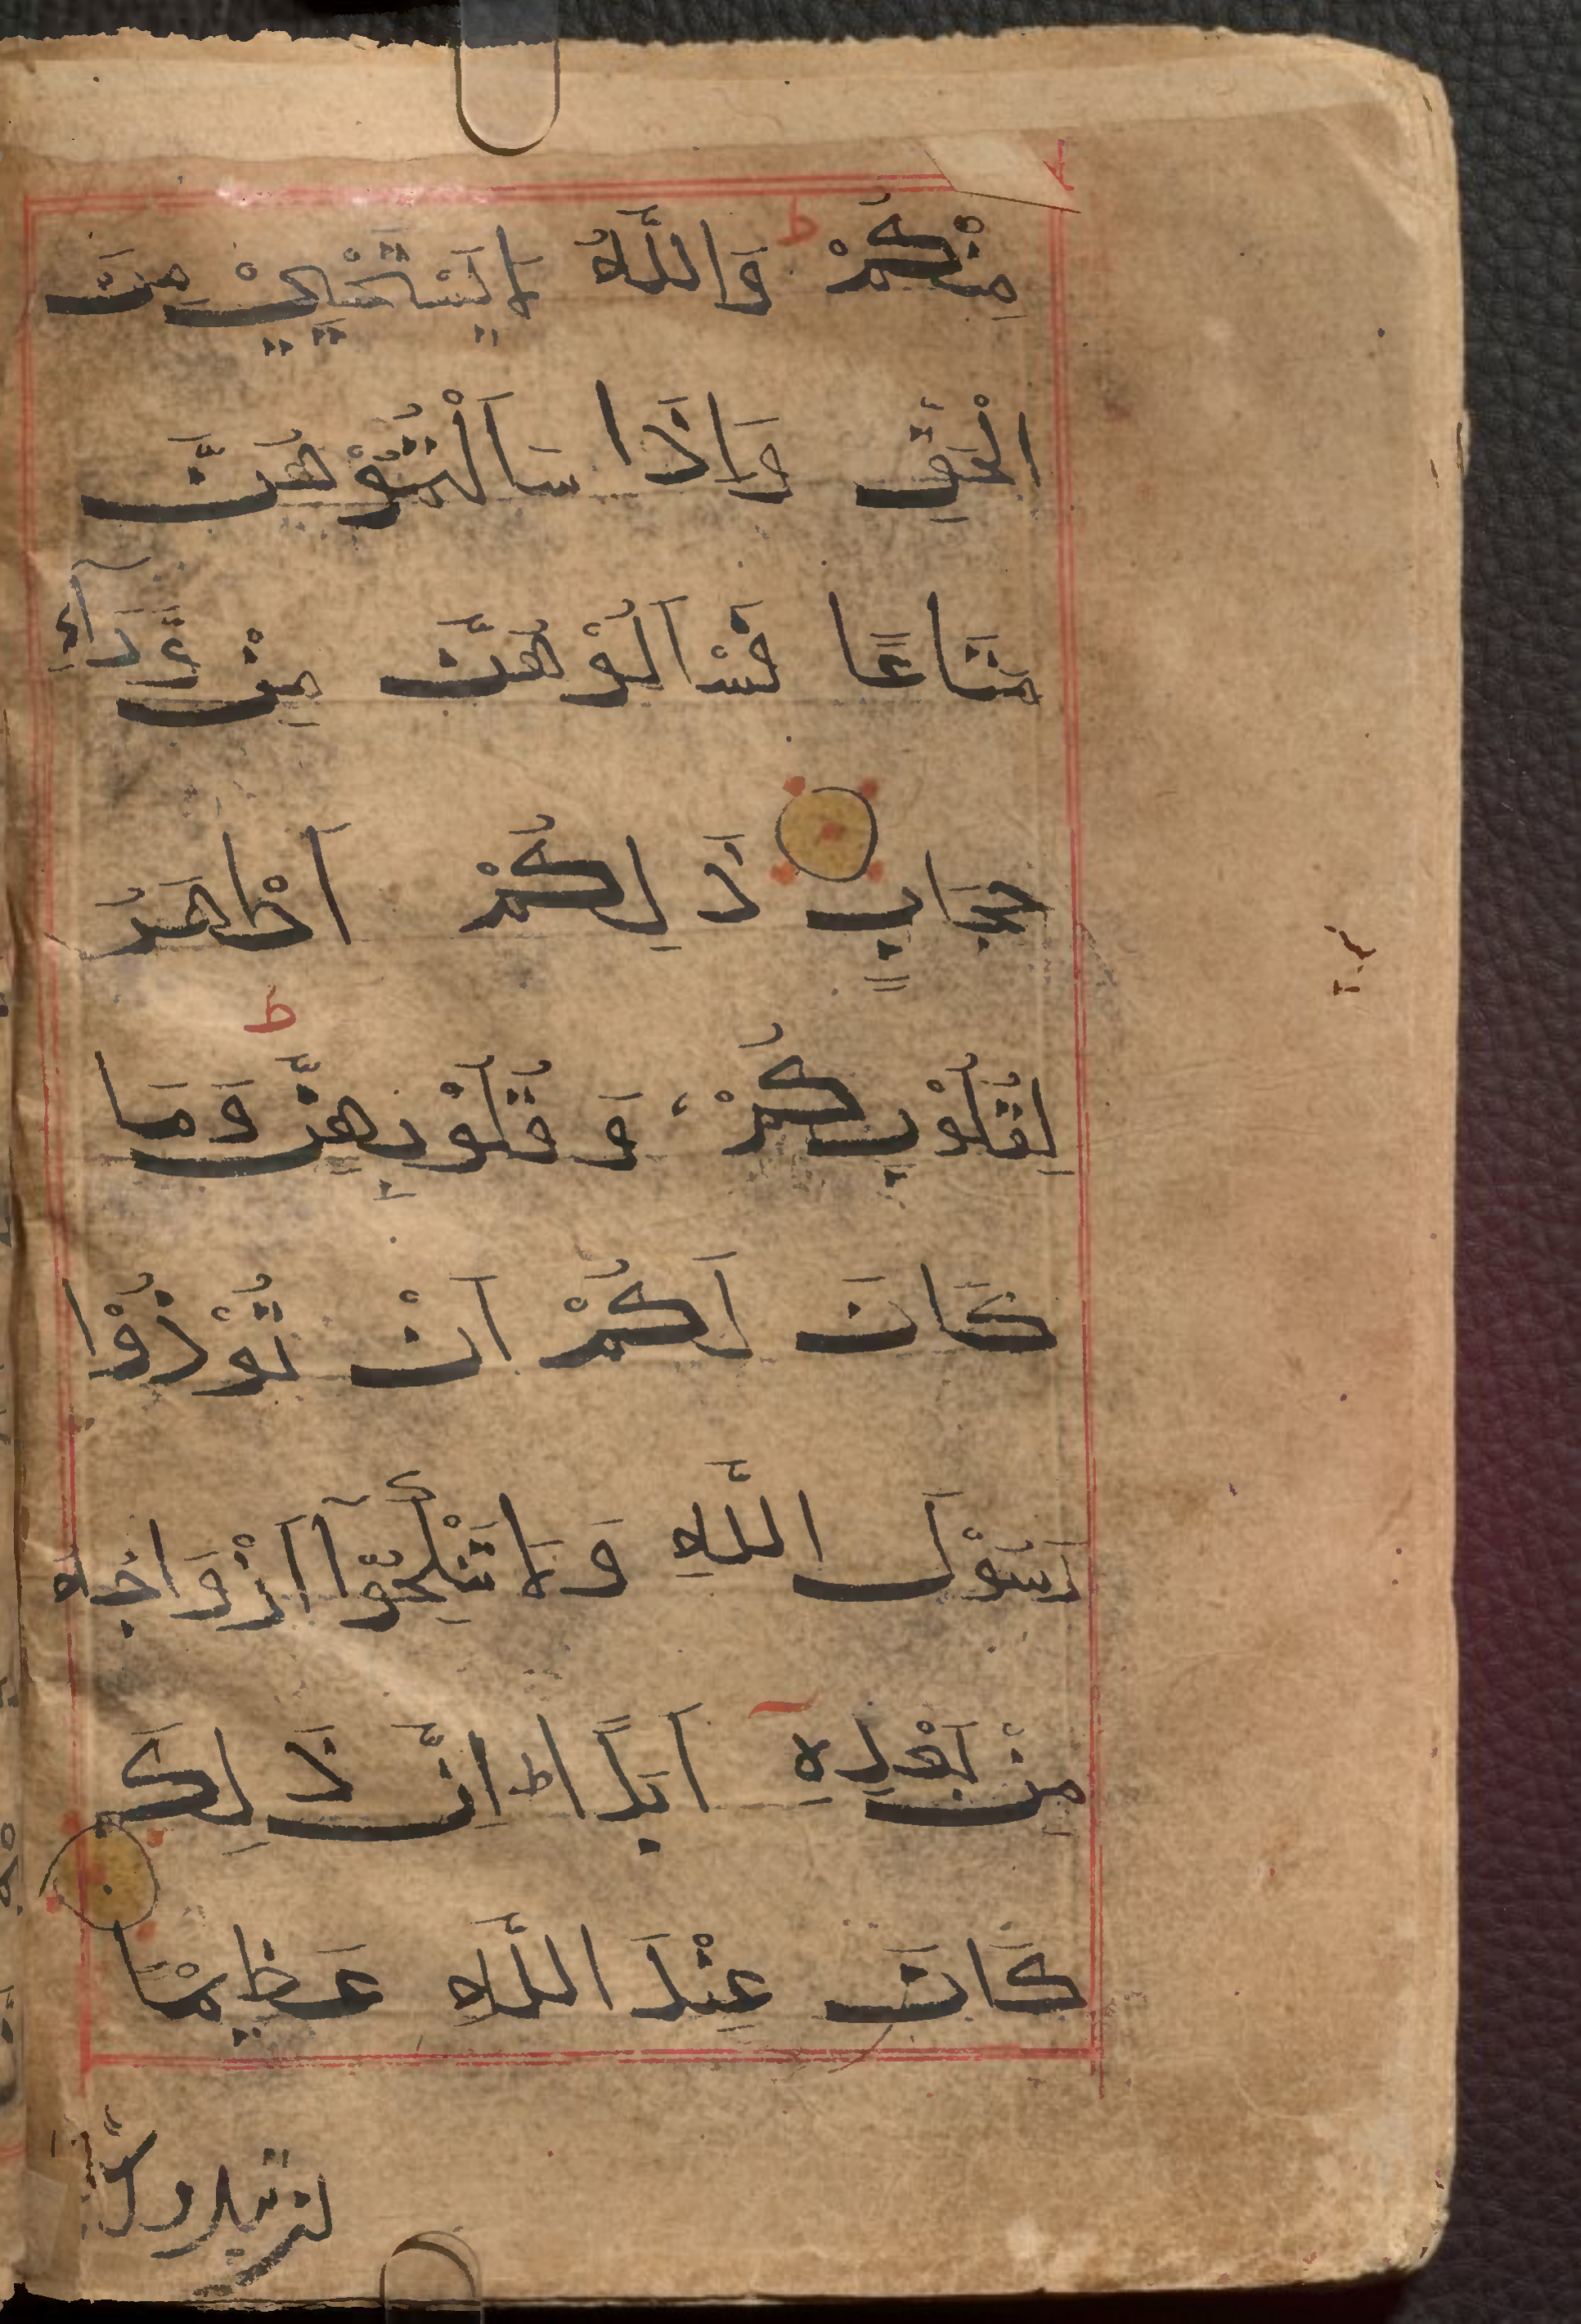 مِنْكُمْ ط وَاللَّهُ لَا يَسْتَحْيِيْ مِنَ
الْحَقِّ وَاِذَا سَاَلْتُمُوْهُنَّ
مَتَاعًا فَسْاَلُوْهُنَّ مِنْ وَّرَآءِ
حِجَابٍ ذَلِكُمْ اَطْهَرُ
لِقُلُوْبِكُمْ وَقُلُوْبِهِنَّ ط وَمَا
كَانَ لَكُمْ اَنْ تُؤْذُوْا
رَسُوْلَ اللَّهِ وَلَا تَنْكِحُوْآ اَزْوَاجَهُ
مِنْ بَعْدِهِ اَبَدًا ط اِنَّ ذَلِكَ
كَانَ عِنْدَ اللَّهِ عَظِيْمًا